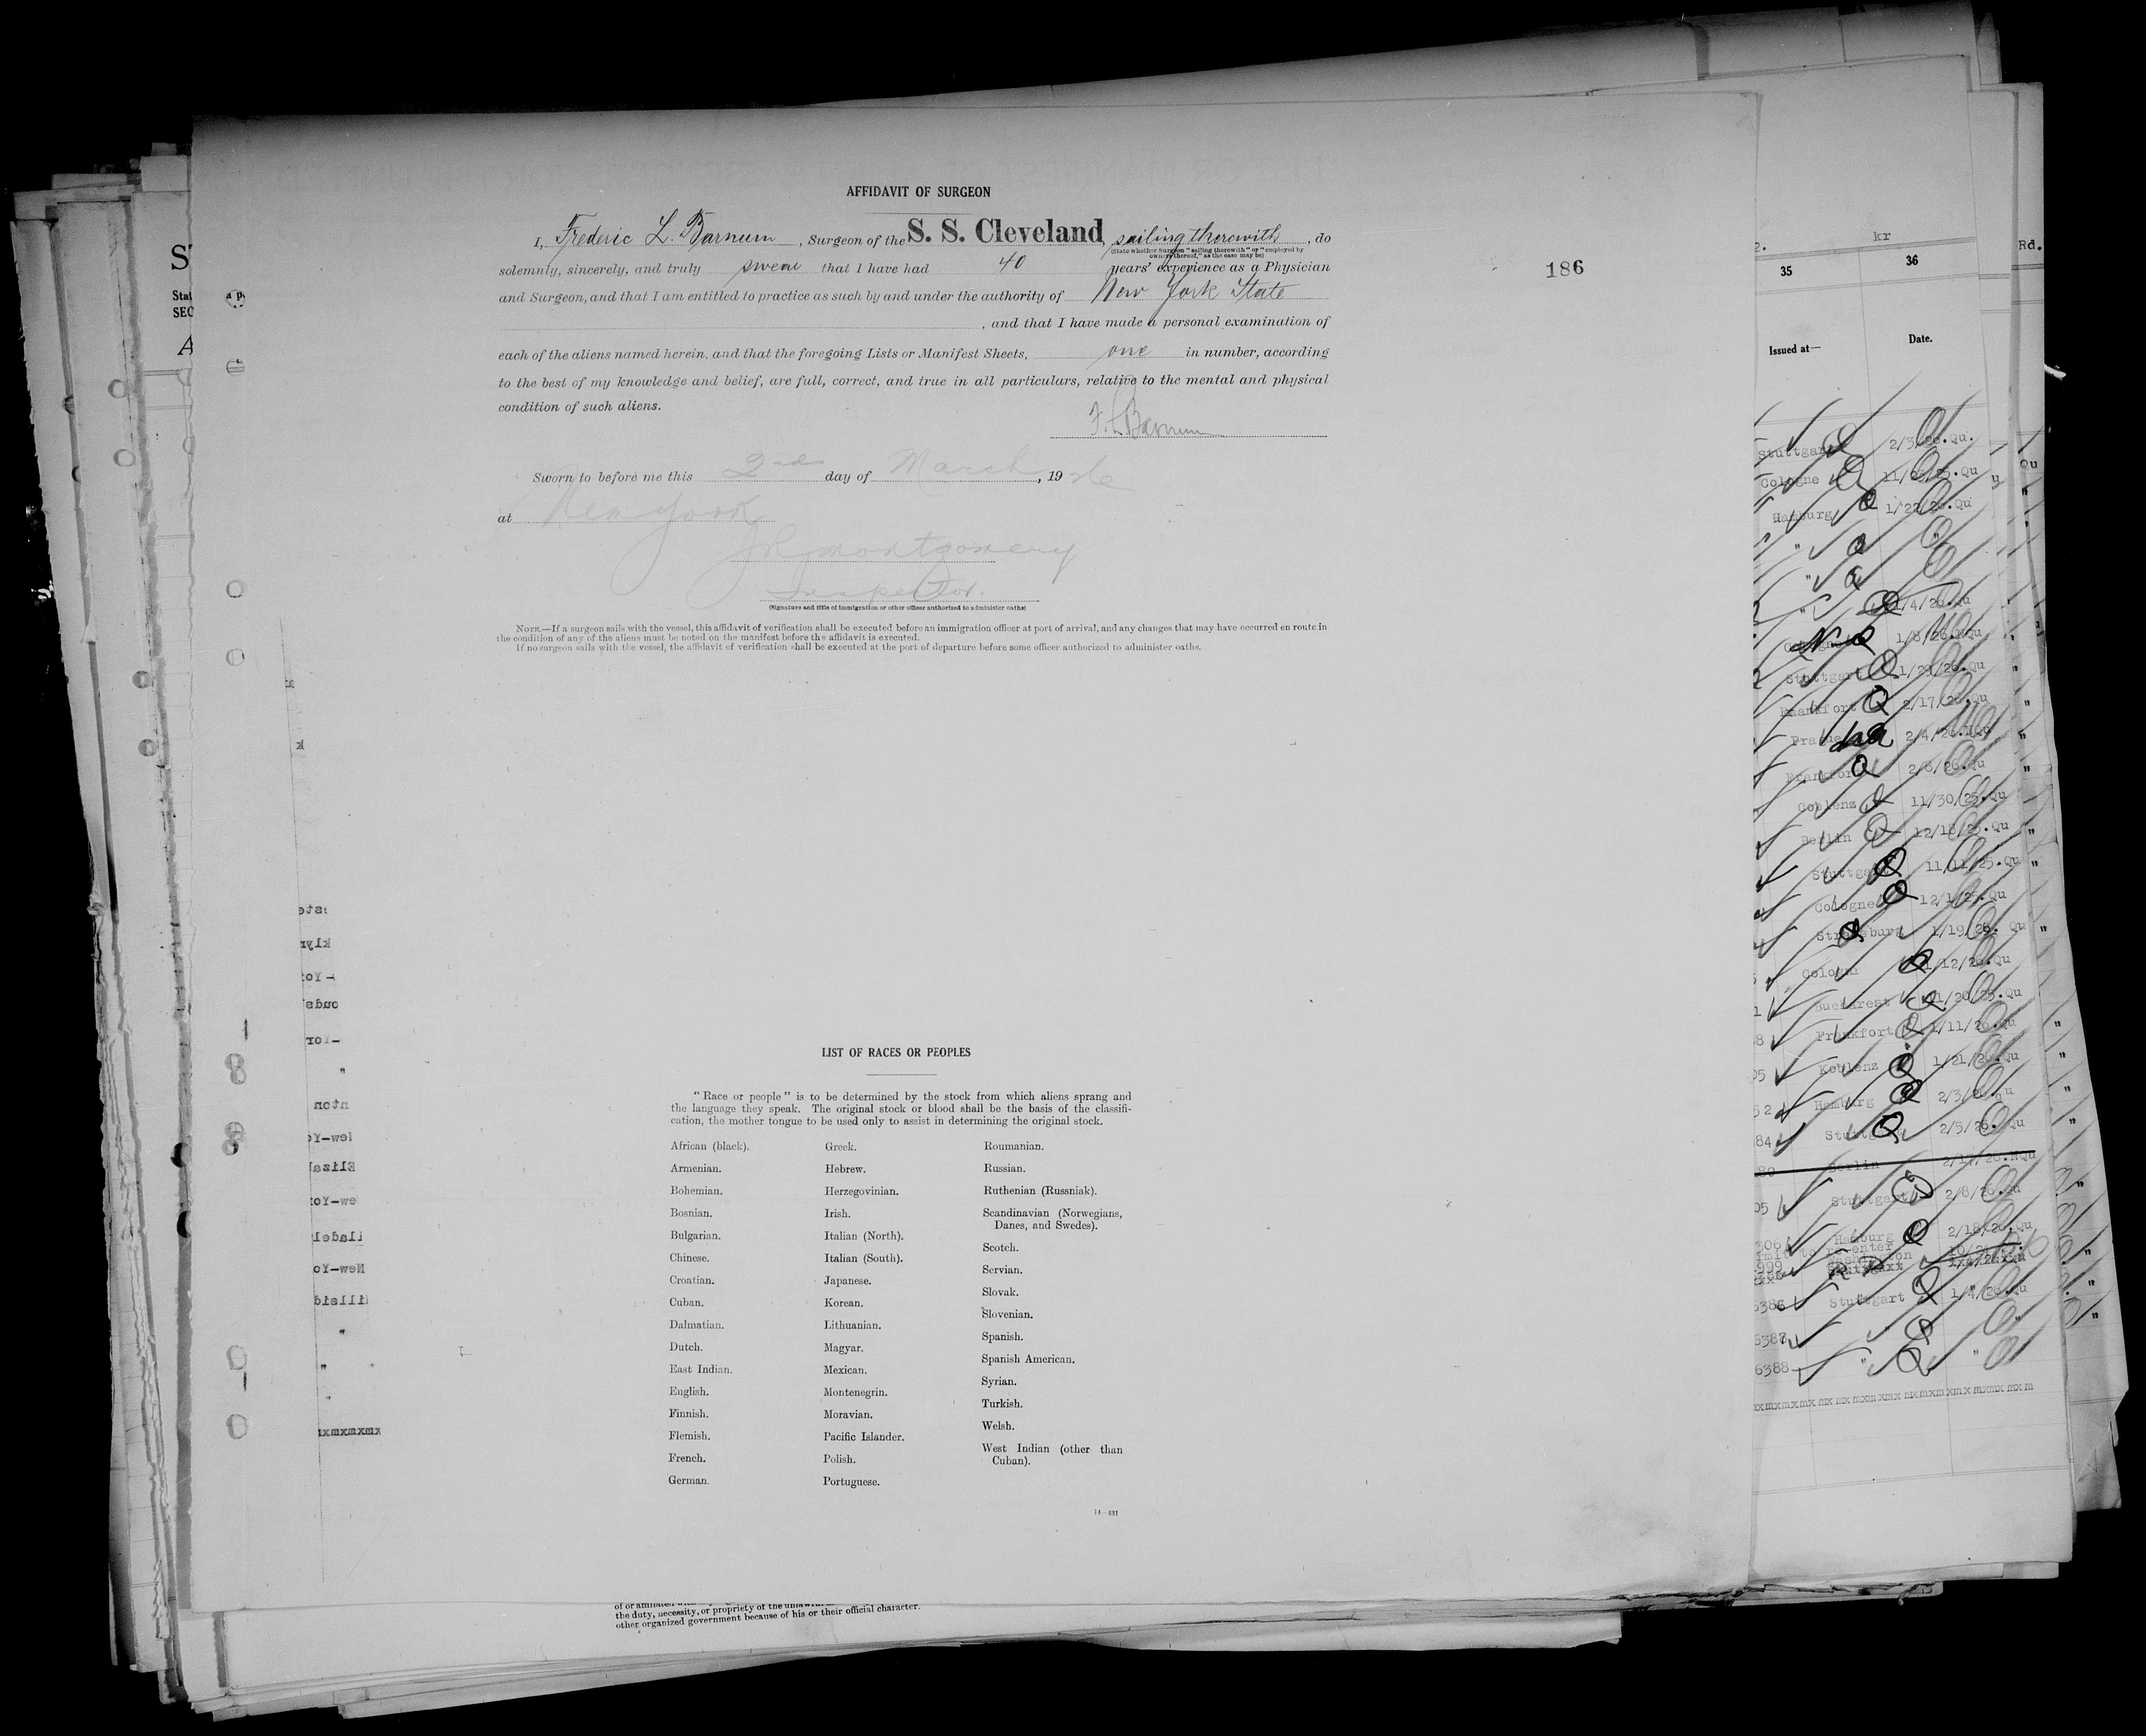 AFFIDAVIT OF SURGEON
I, Frederic L. Barnum, Surgeon of the S. S. Cleveland, sailing therewith, do
(State whether Surgeon "sailing therewith" or "employed by
owners thereof," as the case may be)
solemnly, sincerely, and truly swear that I have had 40 years' experience as a Physician
186
and Surgeon, and that I am entitled to practice as such by and under the authority of New York State
, and that I have made a personal examination of
each of the aliens named herein, and that the foregoing Lists or Manifest Sheets, one in number, according
to the best of my knowledge and belief, are full, correct, and true in all particulars, relative to the mental and physical
condition of such aliens.
F. L. Barnum
Sworn to before me this 2nd day of March, 1926
at New York
J R Montgomery
Inspector.
(Signature and title of immigration or other officer authorized to administer oaths)
NOTE.—If a surgeon sails with the vessel, this affidavit of verification shall be executed before an immigration officer at port of arrival, and any changes that may have occurred en route in
the condition of any of the aliens must be noted on the manifest before the affidavit is executed.
If no surgeon sails with the vessel, the affidavit of verification shall be executed at the port of departure before some officer authorized to administer oaths.
LIST OF RACES OR PEOPLES
"Race or people" is to be determined by the stock from which aliens sprang and
the language they speak. The original stock or blood shall be the basis of the classifi-
cation, the mother tongue to be used only to assist in determining the original stock.
African (black).
Armenian.
Bohemian.
Bosnian.
Bulgarian.
Chinese.
Croatian.
Cuban.
Dalmatian.
Dutch.
East Indian.
English.
Finnish.
Flemish.
French.
German.
Greek.
Hebrew.
Herzegovinian.
Irish.
Italian (North).
Italian (South).
Japanese.
Korean.
Lithuanian.
Magyar.
Mexican.
Montenegrin.
Moravian.
Pacific Islander.
Polish.
Portuguese.
Roumanian.
Russian.
Ruthenian (Russniak).
Scandinavian (Norwegians,
Danes, and Swedes).
Scotch.
Servian.
Slovak.
Slovenian.
Spanish.
Spanish American.
Syrian.
Turkish.
Welsh.
West Indian (other than
Cuban).
14—431
the duty, necessity, or propriety of the
other organized government because of his or their official character.
kr
Rd.
35
36
Issued at—
Date.
Stuttgart 2/3/26.Qu.
Cologne 11/25.Qu
Hamburg 1/22/26.Qu
1/4/26.Qu
1/8/26.
Stuttgart 1/29/26.Qu
Frankfort 2/17/26.Qu
Prague 2/4/26.
Frankfort 2/6/26.Qu
Coblenz 11/30/25.Qu
Berlin 12/18/25.Qu
Stuttgart 11/11/25.Qu
Cologne 12/1/25.Qu
Strassburg 1/19/26. Qu
Cologne 1/12/26.Qu
Bucharest 11/20/25.Qu
Frankfort 1/11/26.Qu
Koblenz 1/21/26.Qu
Hamburg 2/3/26.Qu
84 Stuttgart 2/5/26.Qu
80 Berlin
05 Stuttgart 2/8/26.Qu
306 Hamburg 2/18/26.Qu
6386 Stuttgart 1/4/26.Qu
6387
6388